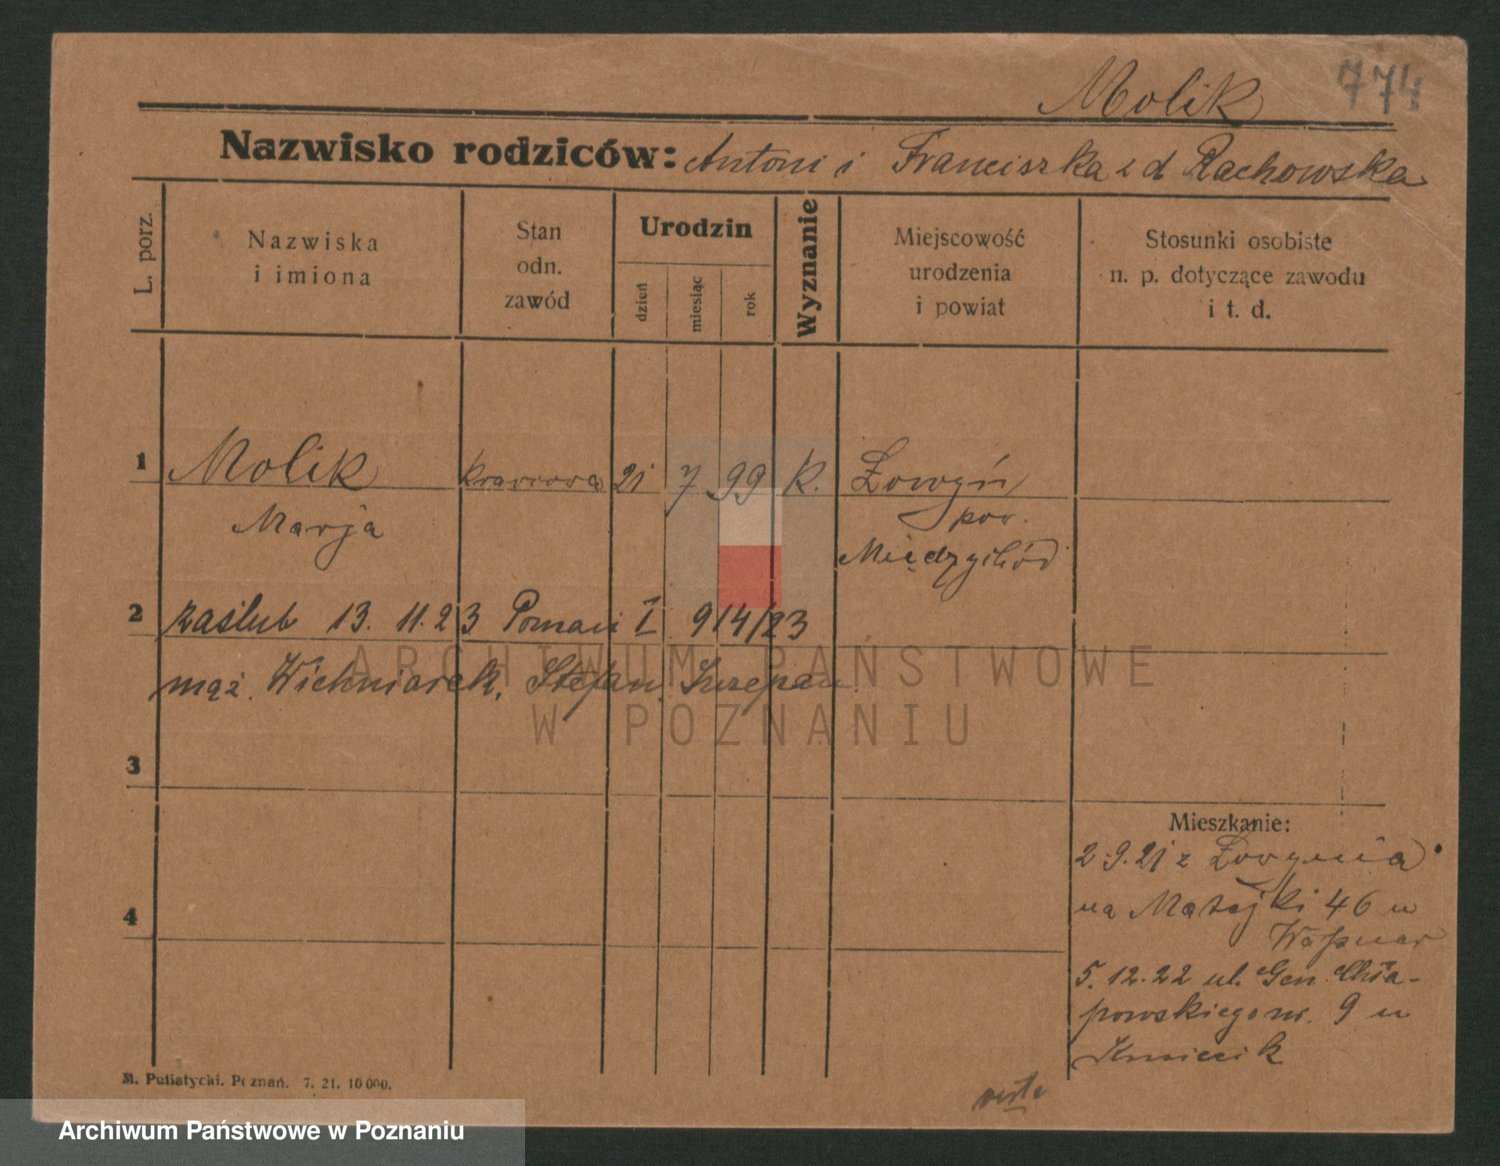 Molik 774
Nazwisko rodziców: Antoni i Franciszka z d Rachowska
L. porz.
Nazwiska
i imiona
Stan
odn.
zawód
Urodzin
dzień
miesiąc
rok
Wyznanie
Miejscowość
urodzenia
i powiat
Stosunki osobiste
n. p. dotyczące zawodu
i t. d.
1 Molik krawcowa 21 7 99 k. Łowyń
Marja pow.
Międzychód
2 zaślub 13. 11. 23 Poznań I 914/23
mąż Wichniarek, Stefan Szczepan
3
4
Mieszkanie:
2.9.21 z Łowynia
na Matejki 46 u
5.12.22 ul. Gen. Chła-
powskiego nr. 9 u
Kmiecik
verte
M. Putiatycki. Poznań. 7. 21. 10 000.
ARCHIWUM PAŃSTWOWE
W POZNANIU
Archiwum Państwowe w Poznaniu